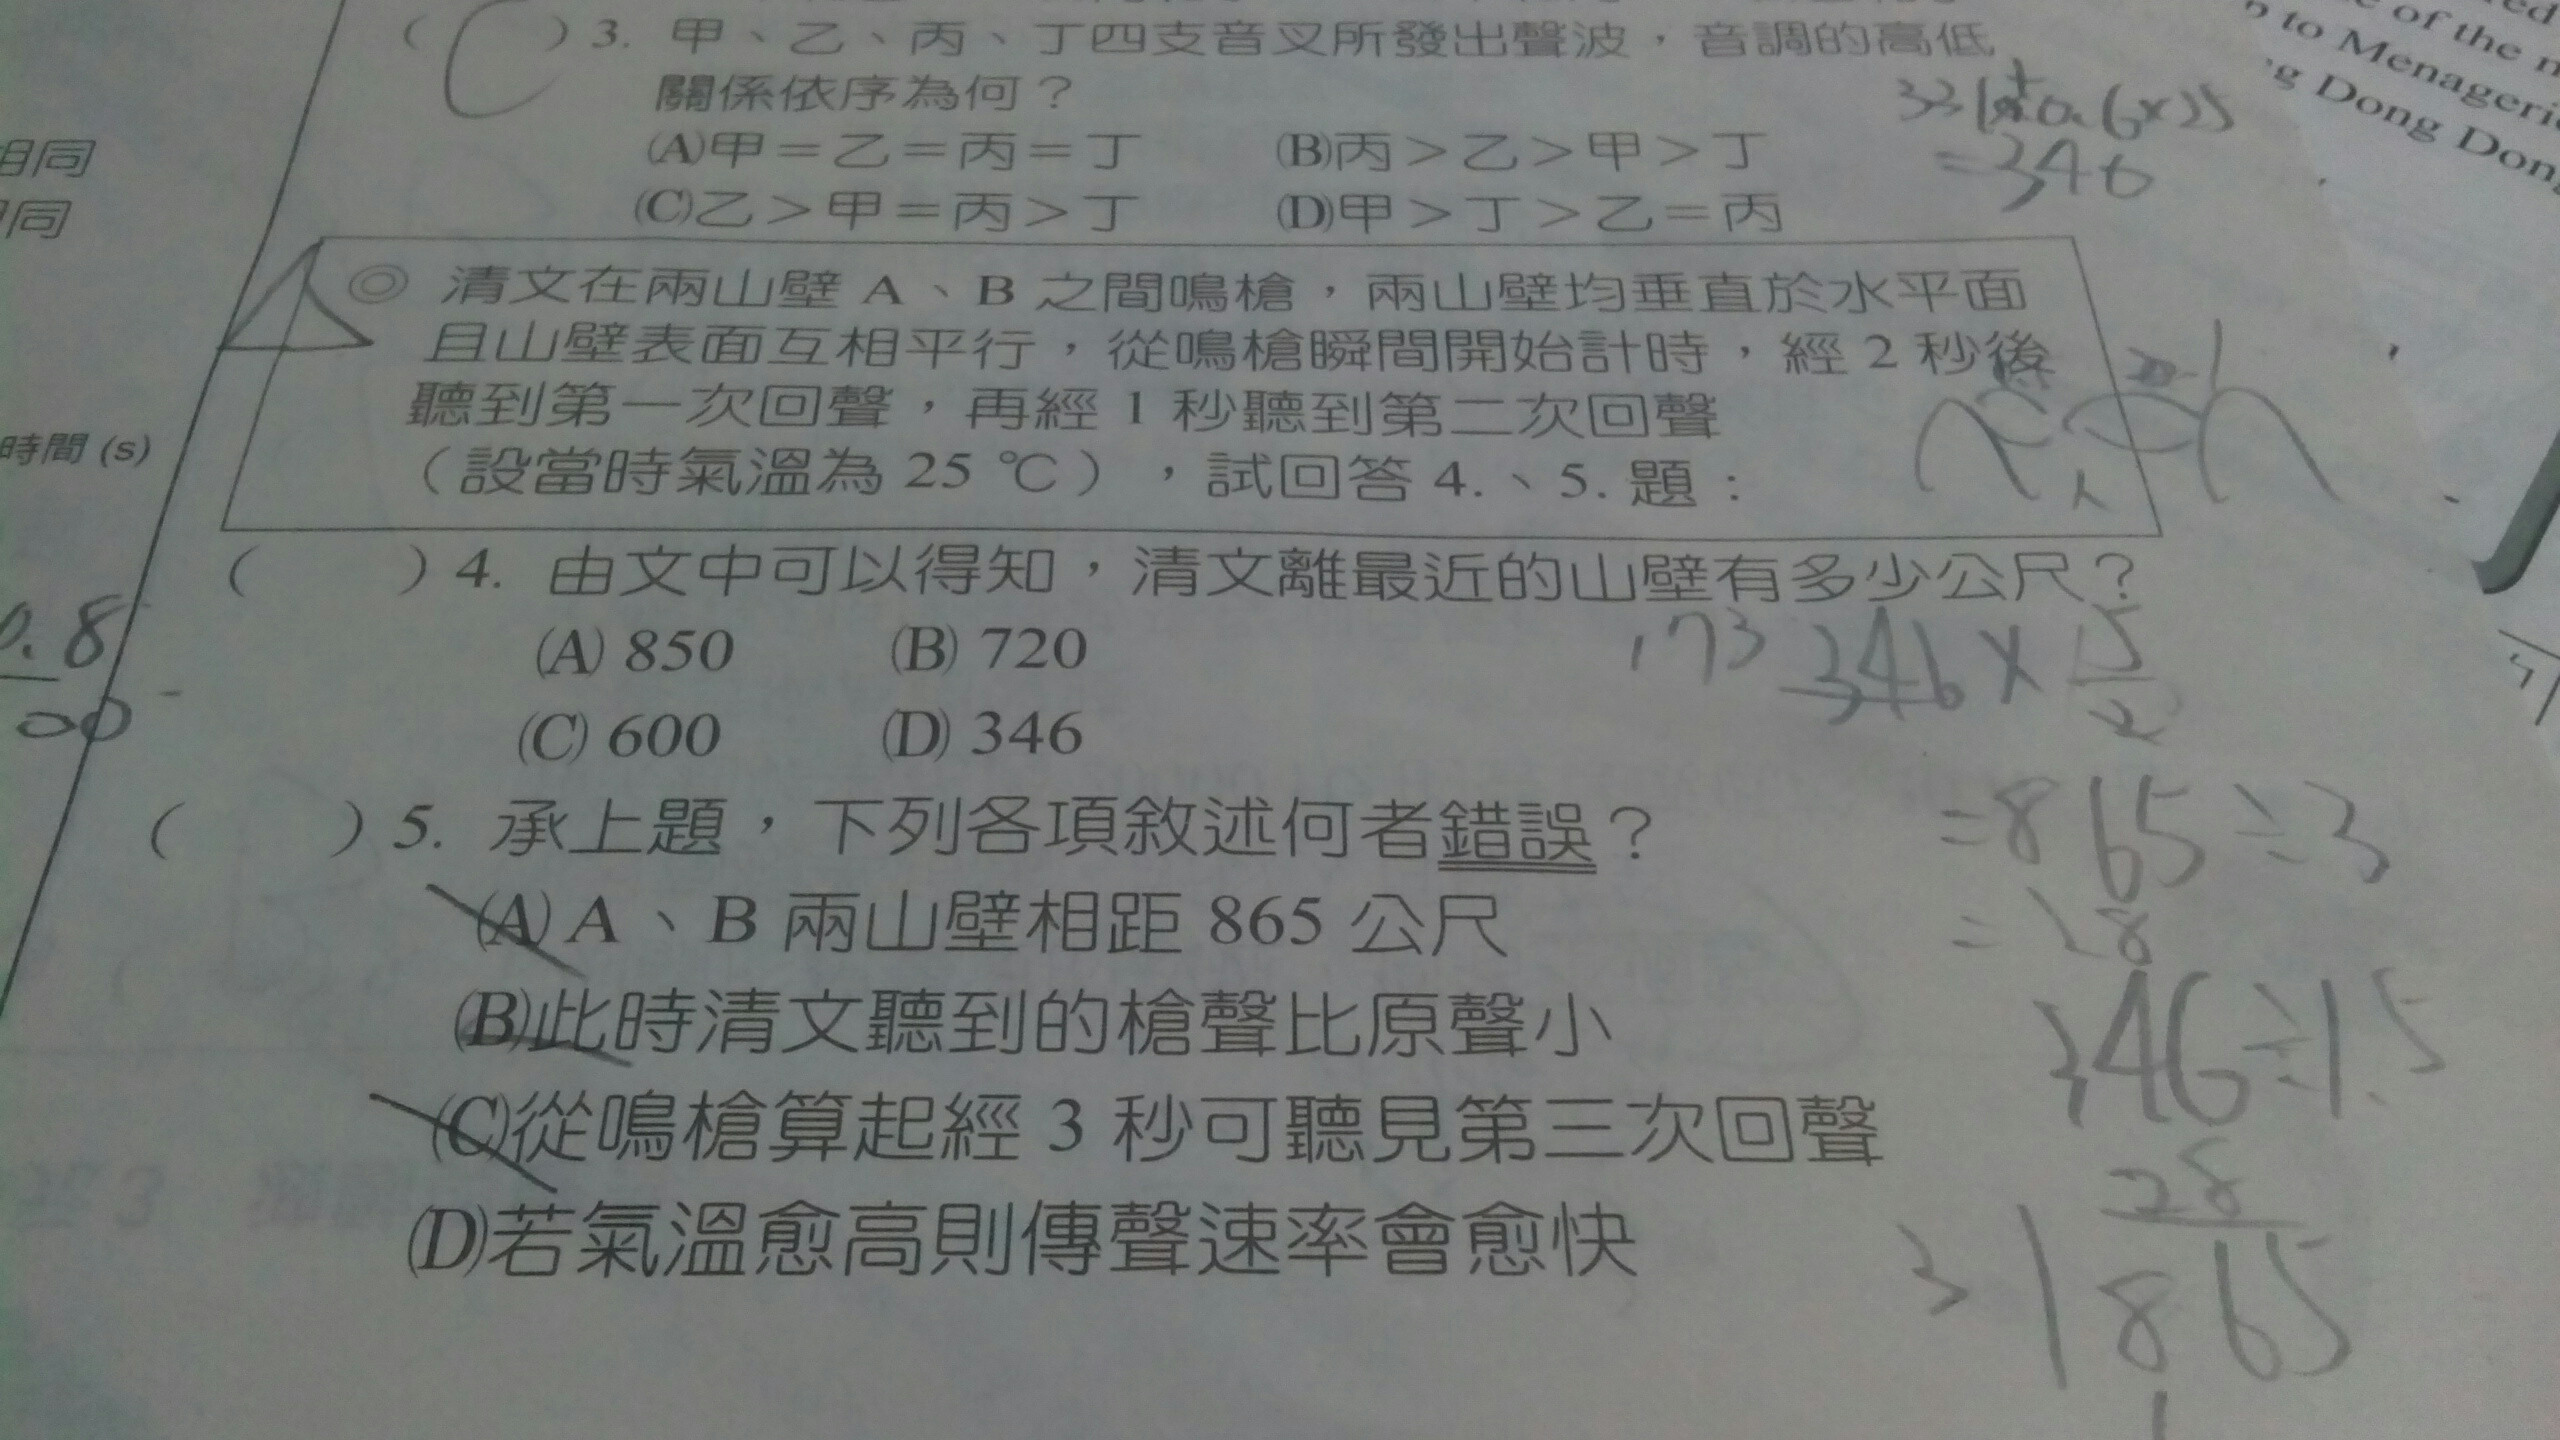 ( C ) 3. 甲、乙、丙、丁四支音叉所發出聲波，音調的高低
關係依序為何？
(A)甲＝乙＝丙＝丁 (B)丙＞乙＞甲＞丁
(C)乙＞甲＝丙＞丁 (D)甲＞丁＞乙＝丙
331+0.6×25
=346
◎ 清文在兩山壁 A、B 之間鳴槍，兩山壁均垂直於水平面
且山壁表面互相平行，從鳴槍瞬間開始計時，經 2 秒後
聽到第一次回聲，再經 1 秒聽到第二次回聲
（設當時氣溫為 25 ℃），試回答 4.、5. 題：
( ) 4. 由文中可以得知，清文離最近的山壁有多少公尺？
(A) 850 (B) 720
(C) 600 (D) 346
173 346 × 5/2
=865÷3
=28
346÷1.5
28
3 865
( ) 5. 承上題，下列各項敘述何者錯誤？
(A) A、B 兩山壁相距 865 公尺
(B)此時清文聽到的槍聲比原聲小
(C)從鳴槍算起經 3 秒可聽見第三次回聲
(D)若氣溫愈高則傳聲速率會愈快
相同
同
時間 (s)
0.8
00
of the
to Menageri
g Dong Dong